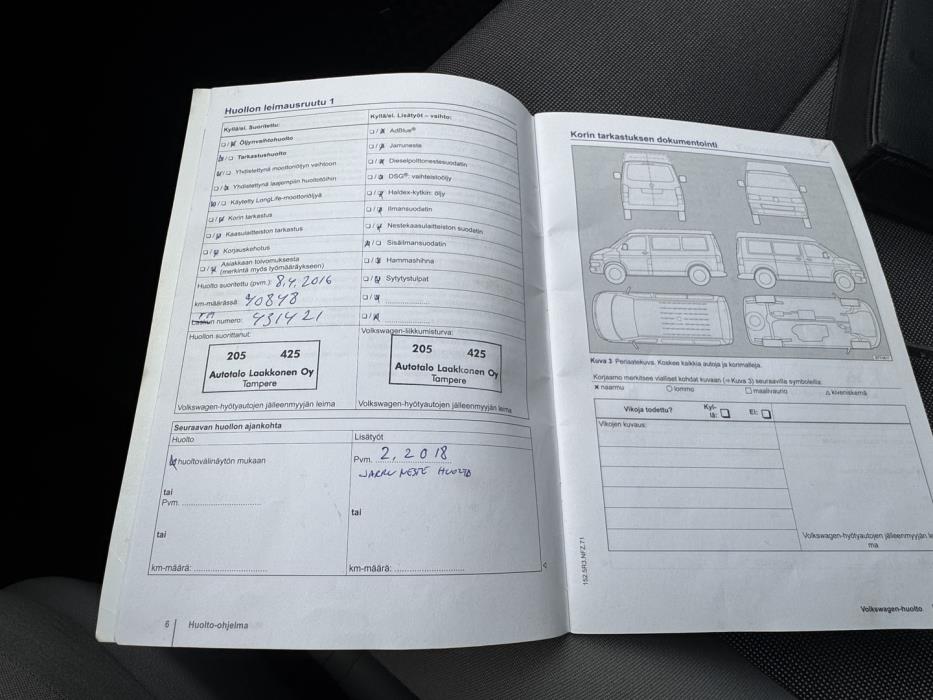 Huollon leimausruutu 1
Kyllä/ei. Suoritettu:
Öljynvaihtohuolto
Tarkastushuolto
Yhdistettynä moottoriöljyn vaihtoon
Yhdistettynä laajempiin huoltotöihin
Käytetty LongLife-moottoriöljyä
Korin tarkastus
Kaasulaitteiston tarkastus
Korjauskehotus
Asiakkaan toivomuksesta
(merkintä myös työmääräykseen)
Huolto suoritettu (pvm.): 8.4.2016
km-määrässä:
numero: 431421
Huollon suorittanut:
205 425
Autotalo Laakkonen Oy
Tampere
Volkswagen-hyötyautojen jälleenmyyjän leima
Kyllä/ei. Lisätyöt – vaihto:
AdBlue®
Jarruneste
Dieselpolttonestesuodatin
DSG®: vaihteistoöljy
Haldex-kytkin: öljy
Ilmansuodatin
Nestekaasulaitteiston suodatin
Sisäilmansuodatin
Hammashihna
Sytytystulpat
Volkswagen-liikkumisturva:
205 425
Autotalo Laakkonen Oy
Tampere
Volkswagen-hyötyautojen jälleenmyyjän leima
Seuraavan huollon ajankohta
Huolto
huoltovälinäytön mukaan
tai
Pvm.
tai
km-määrä:
Lisätyöt
Pvm. 2.2018
JARRUNESTE HUOLTO
tai
km-määrä:
6 Huolto-ohjelma
Korin tarkastuksen dokumentointi
Kuva 3 Periaatekuva. Koskee kaikkia autoja ja korimalleja.
Korjaamo merkitsee vialliset kohdat kuvaan (⇒Kuva 3) seuraavilla symboleilla:
× naarmu ○ lommo □ maalivaurio △ kiveniskemä
Vikoja todettu? Kyl-
lä: Ei:
Vikojen kuvaus:
Volkswagen-hyötyautojen jälleenmyyjän lei
ma
152.5R3.NFZ.71
Volkswagen-huolto